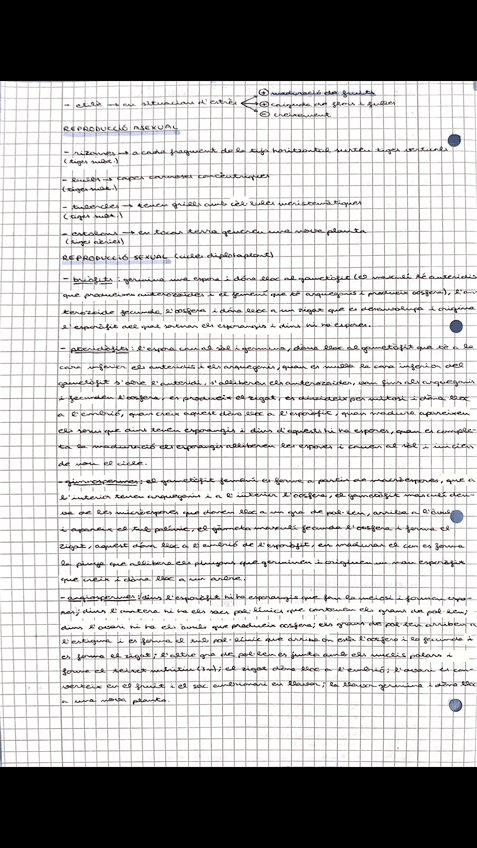 ⊕ maduració de fruits
- etilè → en situacions d'estrès ⊕ caiguda de flors i fulles
⊖ creixement
REPRODUCCIÓ ASEXUAL
- rizomes → a cada fragment de la tija horitzontal surten tiges verticals
(tiges subt.)
- bulbs → capes carnoses concèntriques
(tiges subt.)
- tubercles → tenen grills amb cèl·lules meristemàtiques
(tiges subt.)
- estolons → en tocar terra generen una nova planta
(tiges aèries)
REPRODUCCIÓ SEXUAL (cicle diplohaplont)
- briòfits: germina una espora i dóna lloc al gametòfit (el masculí té anteridis
que produeixen anterozoides i el femení que té arquegonis i produeix oosfera), l'an
terozoide fecunda l'oosfera i dóna lloc a un zigot que es desenvolupa i origina
l'esporòfit del qual sortiran els esporangis i dins hi ha espores.
- pteridòfits: l'espora cau al sòl i germina, dóna lloc al gametòfit que té a la
cara inferior els anteridis i els arquegonis, quan es mulla la cara inferior del
gametòfit s'obre l'anteridi, s'alliberen els anterozoides, van fins als arquegonis
i fecunden l'oosfera, es produeix el zigot, es divideix per mitosi i dóna lloc
a l'embrió, quan creix aquest dóna lloc a l'esporòfit, quan madura apareixen
els sorus que dins tenen esporangis i dins d'aquests hi ha espores, quan es comple-
ta la maduració els esporangis alliberen les espores i cauen al sòl i inicien
de nou el cicle.
- gimnospermes: el gametòfit femení es forma a partir de macroespores, que a
l'interior tenen arquegonis i a l'interior l'oosfera, el gametòfit masculí deri
va de les microespores que donen lloc a un gra de pol·len, arriba a l'òvul
i apareix el tub pol·línic, el gàmeta masculí fecunda l'oosfera i forma el
zigot, aquest dóna lloc a l'embrió de l'esporòfit, en madurar el con es forma
la pinya que allibera els pinyons que germinen i originen un nou esporòfit
que creix i dóna lloc a un arbre.
- angiospermes: dins l'esporòfit hi ha esporangis que fan la meiosi i formen espo-
res; dins l'antera hi ha els sacs pol·línics que contenen els grans de pol·len;
dins l'ovari hi ha els òvuls que produeixen oosfera; els grans de pol·len arriben a
l'estigma i es forma el tub pol·línic que arriba on està l'oosfera i la fecunda i
es forma el zigot; l'altre gra de pol·len es junta amb els nuclis polars i
forma el teixit nutritiu (3n); el zigot dóna lloc a l'embrió; l'ovari es con-
verteix en el fruit i el sac embrionari en llavor; la llavor germina i dóna lloc
a una nova planta.